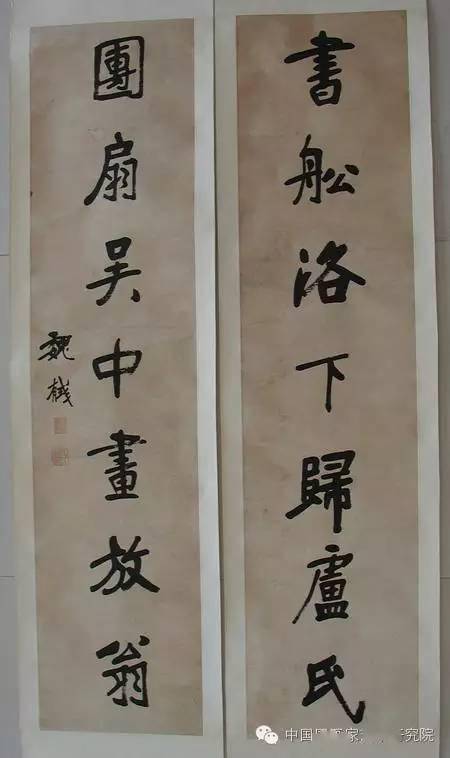 書舩洛下歸盧氏
團扇吳中畫放翁
魏戫
中国
究院